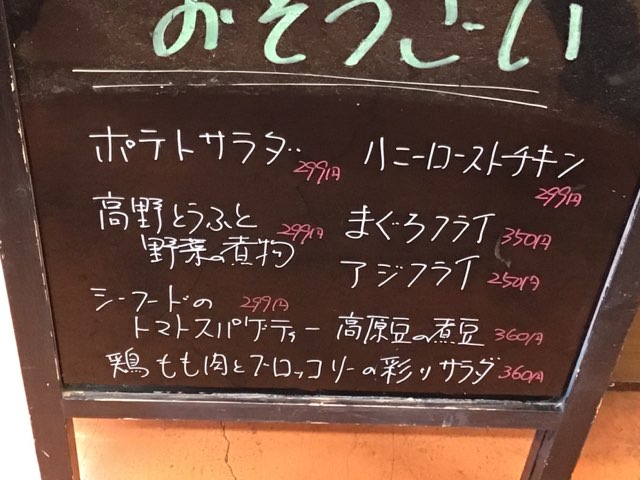 おそうざい
ポテトサラダ 299円
ハニーローストチキン
299円
高野とうふと 299円
野菜の煮物
まぐろフライ 350円
アジフライ 250円
シーフードの 299円
トマトスパゲティー
高原豆の煮豆 360円
鶏もも肉とブロッコリーの彩りサラダ 360円